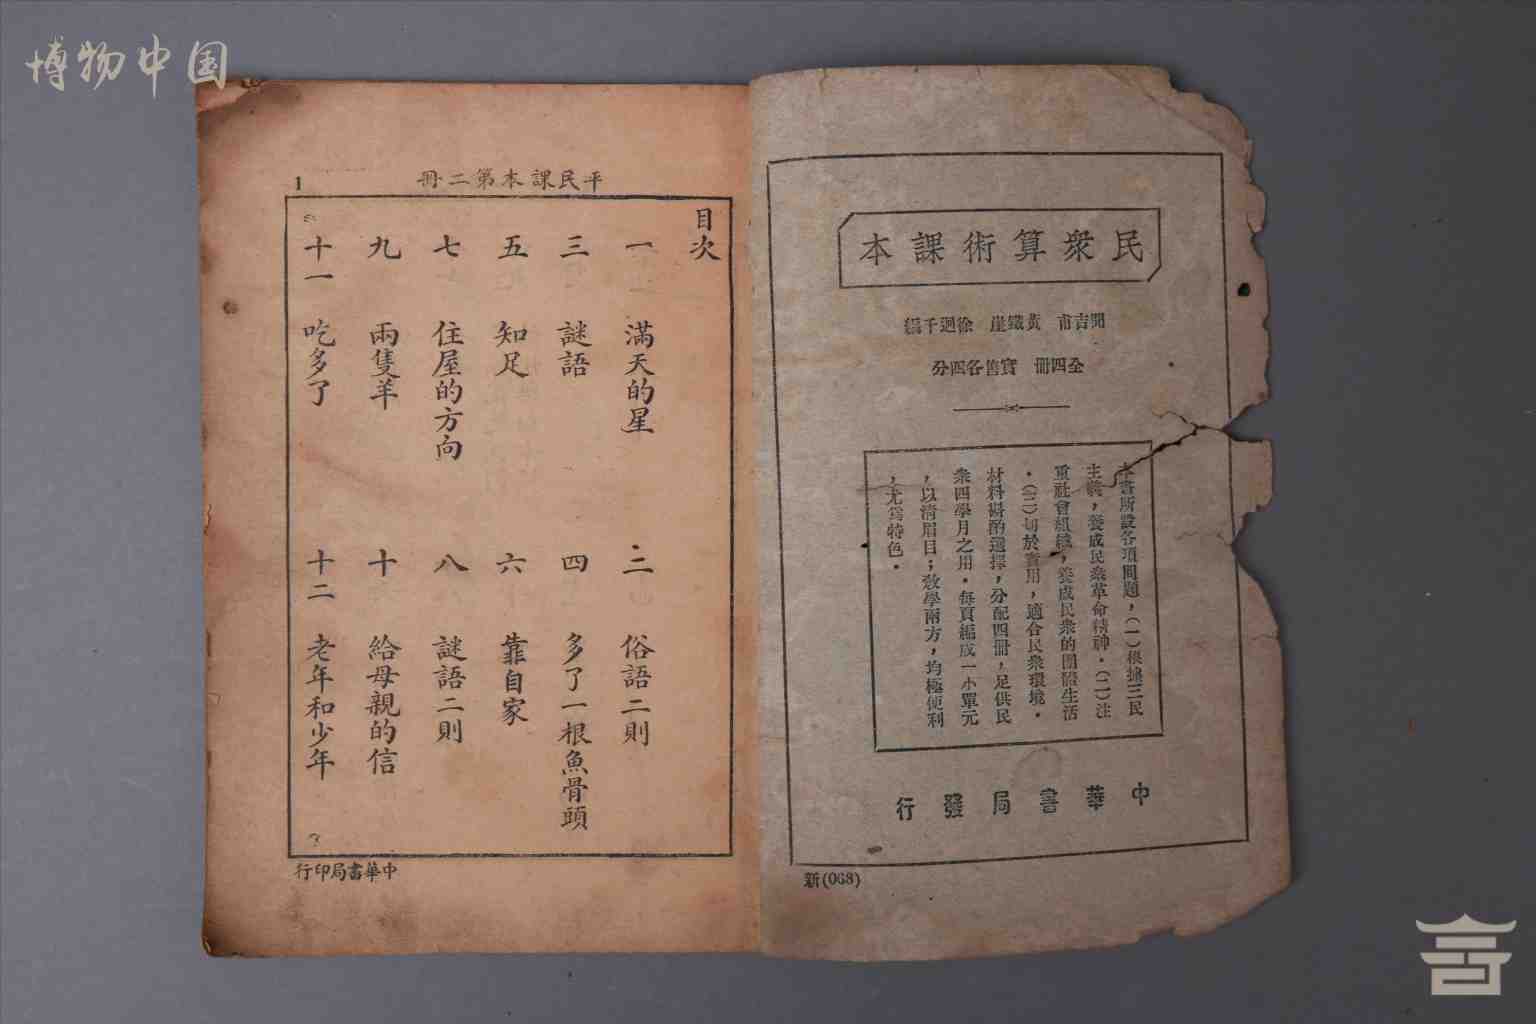 博物中国
民衆算術課本
黃鐵崖 徐迥千編
全四冊 實售各四分
本書所設各項問題，(一)根據三民
主義，養成民衆革命精神．(二)注
重社會組織，養成民衆的團體生活
．(三)切於實用，適合民衆環境．
材料斟酌選擇，分配四冊，足供民
衆四學月之用．每頁編成一小單元
，以清眉目；教學兩方，均極便利
，尤爲特色．
中華書局發行
新(068)
平民課本第二冊
1
目次
一 滿天的星
二 俗語二則
三 謎語
四 多了一根魚骨頭
五 知足
六 靠自家
七 住屋的方向
八 謎語二則
九 兩隻羊
十 給母親的信
十一 吃多了
十二 老年和少年
中華書局印行